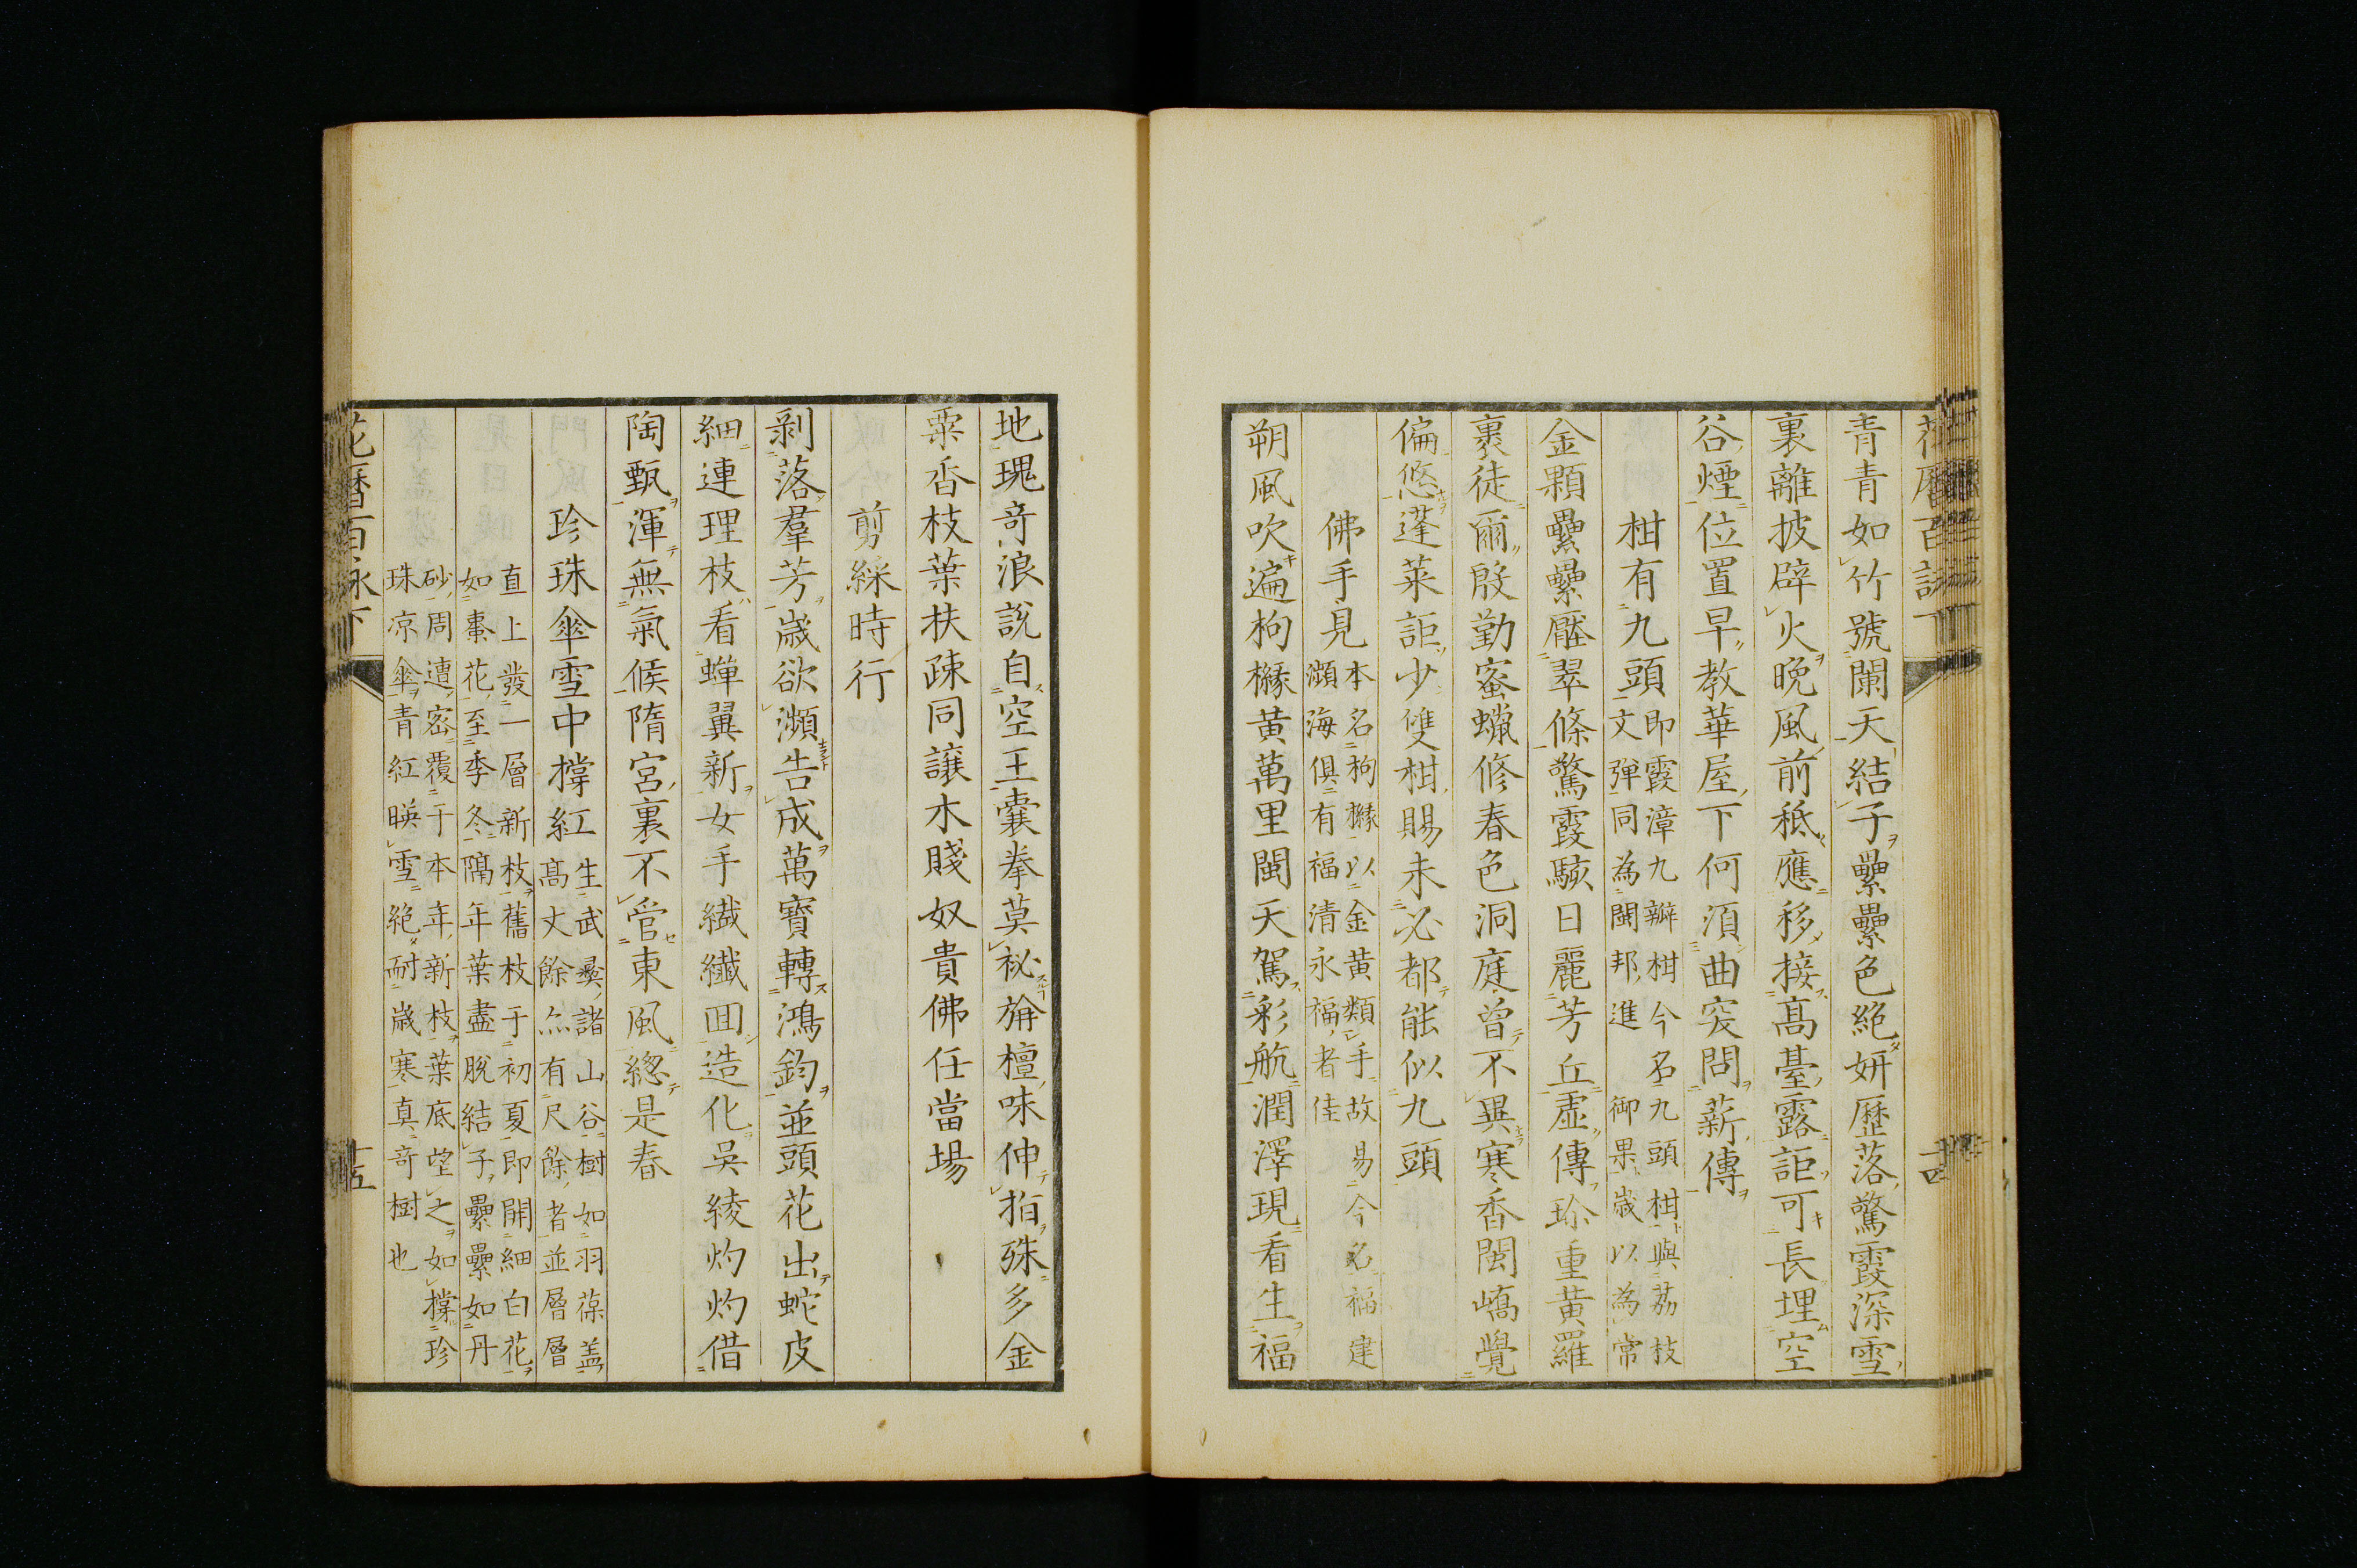 花曆百詠下
青青如竹號闌天結子纍纍色絶妍歷落驚霞深雪
裏離披辟火晚風前秪應移接高臺露詎可長埋空
谷煙位置早教華屋下何須曲突問薪傳
柑有九頭即霞漳九瓣柑今名九頭柑與荔枝
文彈同為閩邦進御果歲以為常
金顆纍纍壓翠條驚霞駭日麗芳丘虛傳珍重黃羅
裹徒爾殷勤蜜蠟修春色洞庭曾不異寒香閩嶠覺
偏悠蓬萊詎少雙柑賜未必都能似九頭
佛手見本名枸櫞以金黃類手故易今名福建
瀕海俱有福清永福者佳
朔風吹遍枸櫞黃萬里閩天駕彩航潤澤現看生福
十四
地瑰奇浪說自空王囊拳莫祕旃檀味伸指殊多金
粟香枝葉扶疎同讓木賤奴貴佛任當場
剪綵時行
剝落羣芳歲欲瀕告成萬寶轉鴻鈞並頭花出蛇皮
細連理枝看蟬翼新女手纖纖回造化吳綾灼灼借
陶甄渾無氣候隋宮裏不管東風總是春
珍珠傘雪中撐紅生武彜諸山谷樹如羽葆蓋
高丈餘亦有尺餘者並層層
直上發一層新枝舊枝于初夏即開細白花
如棗花至季冬隔年葉盡脫結子纍纍如丹
砂周遭密覆于本年新枝葉底望之如撐珍
珠凉傘青紅暎雪絶耐歲寒真奇樹也
花曆百詠下
十五